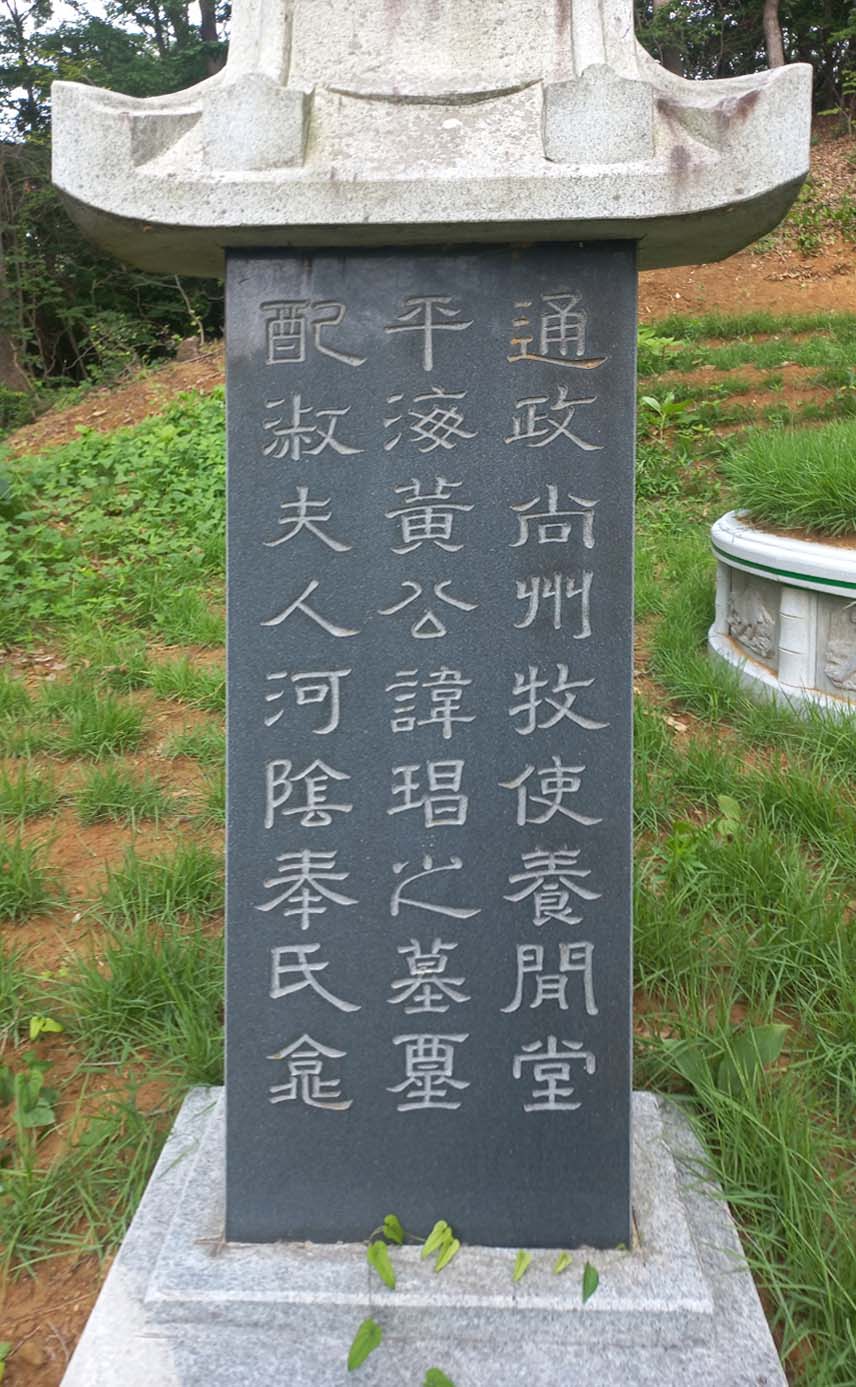 通政尚州牧使養閒堂
平海黃公諱琩之墓
配淑夫人河陰奉氏